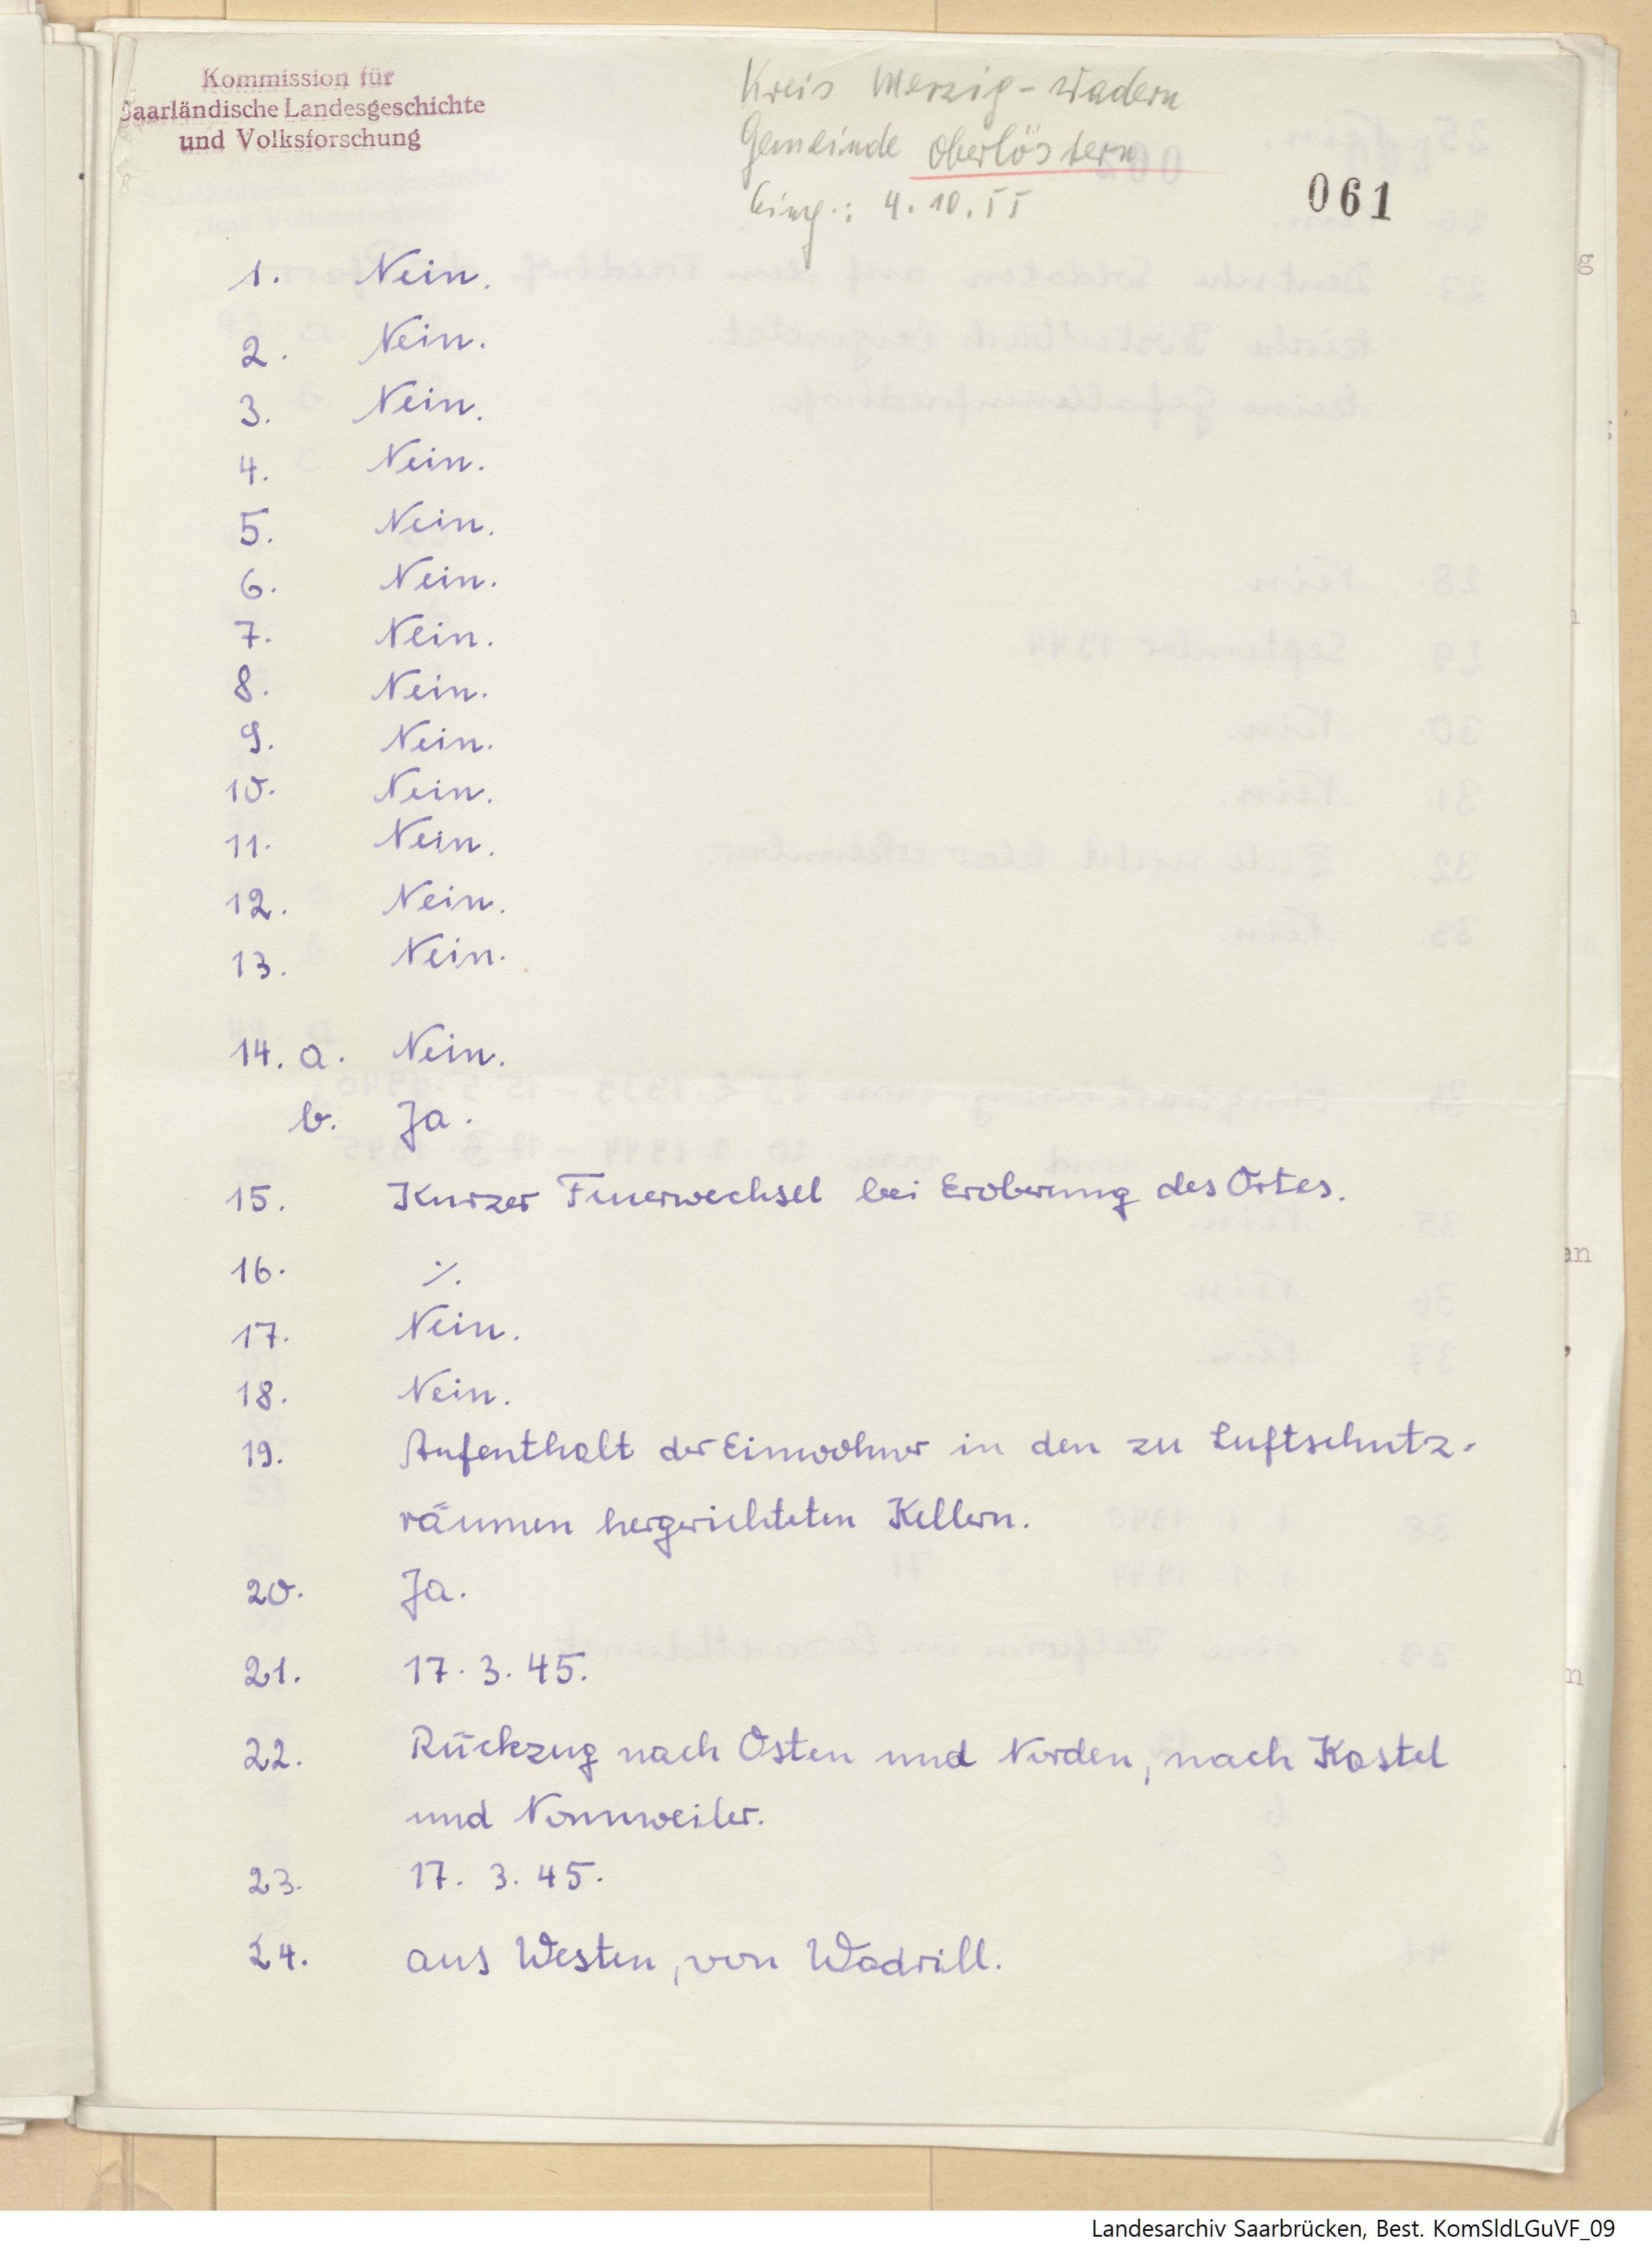 Kommission für
Saarländische Landesgeschichte
und Volksforschung
Kreis Merzig-Wadern
Gemeinde Oberlöstern
Eing.: 4.10.55
061
1. Nein.
2. Nein.
3. Nein.
4. Nein.
5. Nein.
6. Nein.
7. Nein.
8. Nein.
9. Nein.
10. Nein.
11. Nein.
12. Nein.
13. Nein.
14. a. Nein.
b. Ja.
15. Kurzer Feuerwechsel bei Eroberung des Ortes.
16. ⁒
17. Nein.
18. Nein.
19. Aufenthalt der Einwohner in den zu Luftschutz-
räumen hergerichteten Kellern.
20. Ja.
21. 17.3.45.
22. Rückzug nach Osten und Norden, nach Kastel
und Nonnweiler.
23. 17.3.45.
24. aus Westen, von Wadrill.
Landesarchiv Saarbrücken, Best. KomSldLGuVF_09